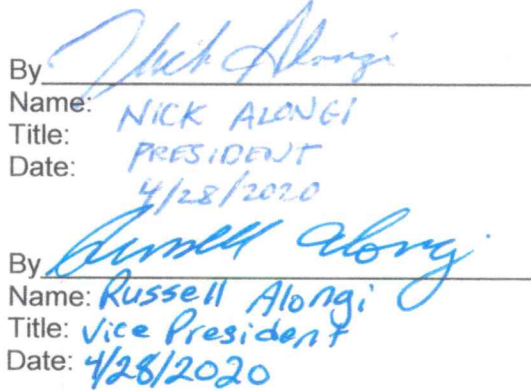 By Nick Alongi
Name: NICK ALONGI
Title: PRESIDENT
Date: 4/28/2020
By Russell Alongi
Name: Russell Alongi
Title: Vice President
Date: 4/28/2020